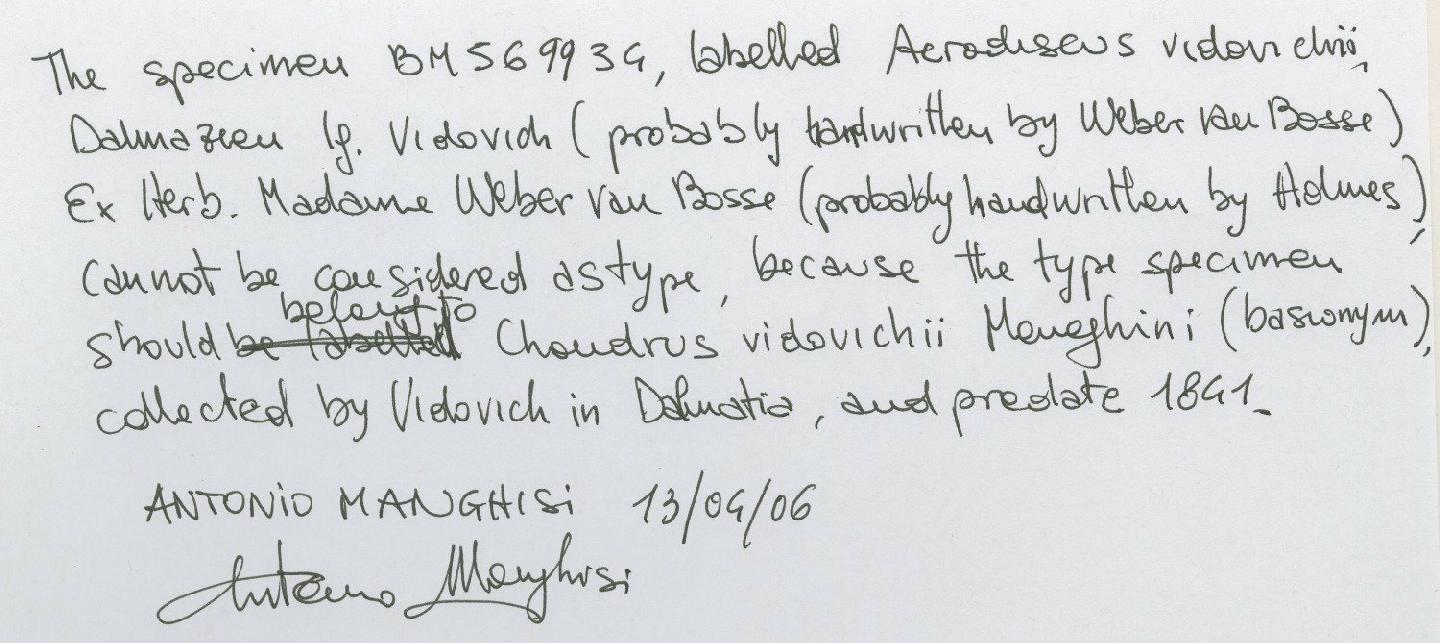 The specimen BM569934, labelled Acrodiscus vidovichii,
Dalmazien lg. Vidovich (probably handwritten by Weber van Bosse)
Ex Herb. Madame Weber van Bosse (probably handwritten by Holmes),
cannot be considered as type, because the type specimen
belong to
should be labelled Chondrus vidovichii Meneghini (basionym),
collected by Vidovich in Dalmatia, and predate 1841.
ANTONIO MANGHISI 13/04/06
Antonio Manghisi